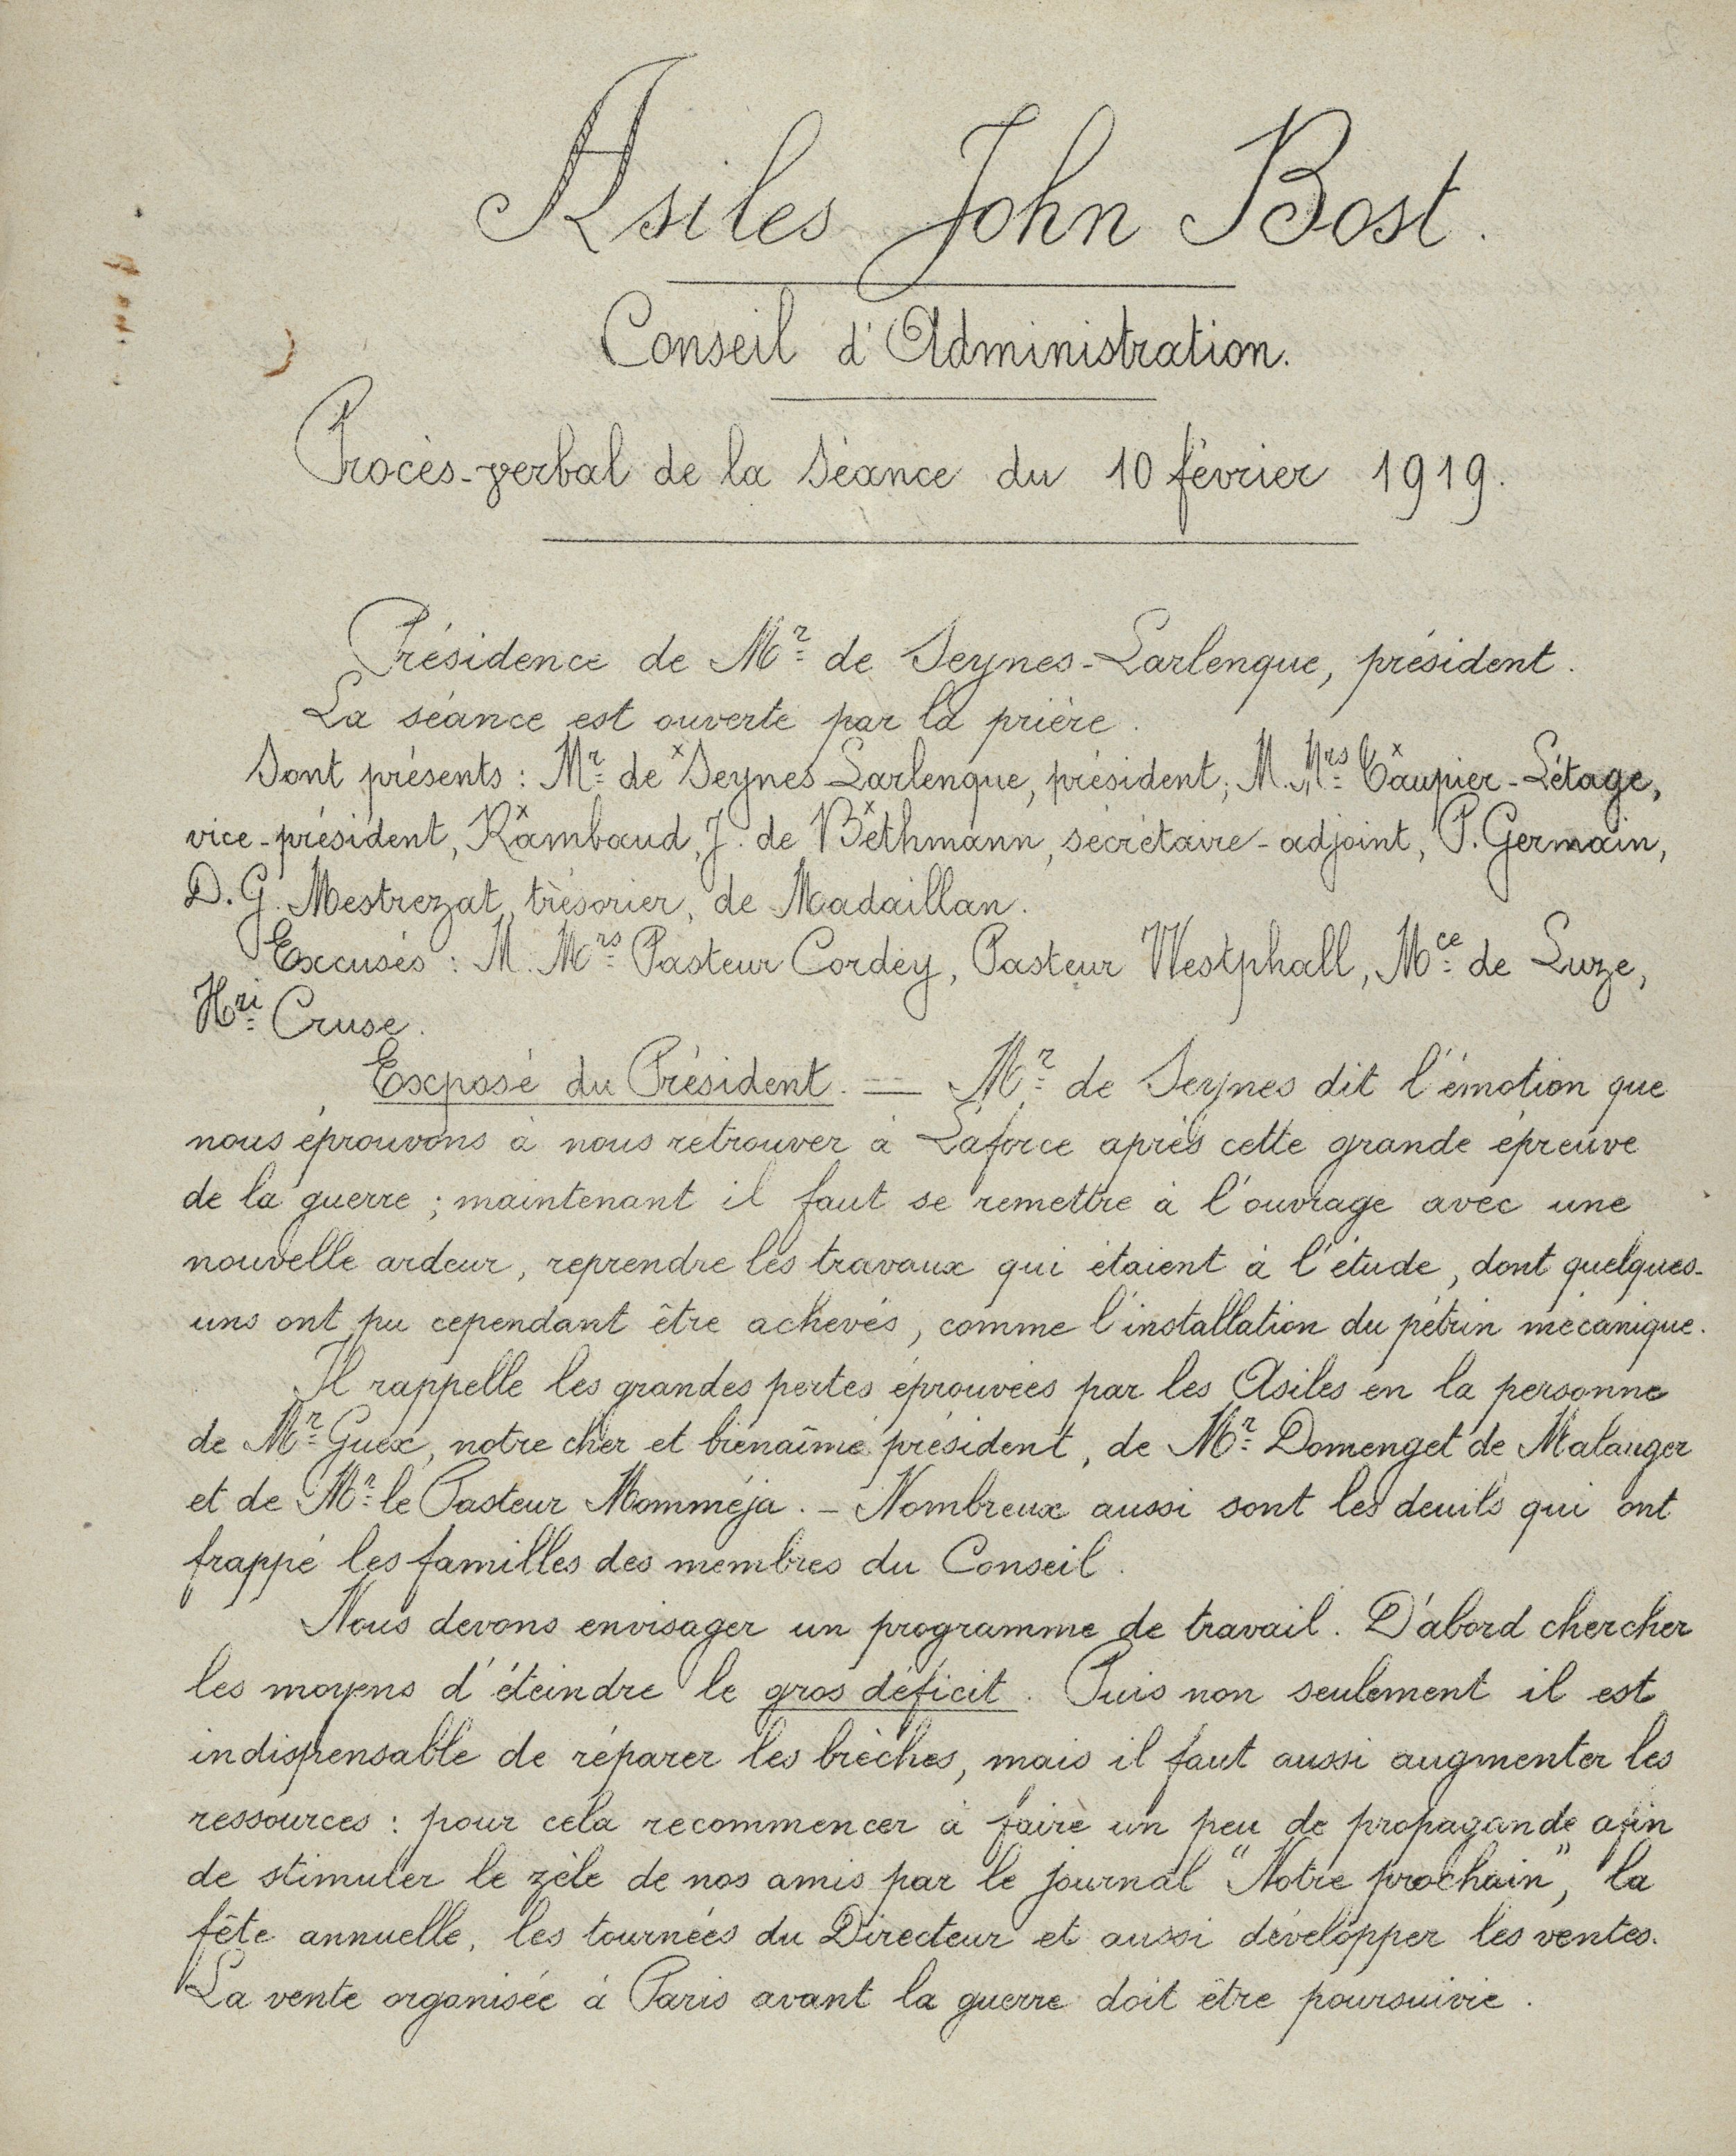 Asiles John Bost.
Conseil d'Administration.
Procès-verbal de la Séance du 10 février 1919.
Présidence de Mr de Seynes-Larlenque, président.
La séance est ouverte par la prière.
Sont présents : Mr de Seynes Larlenque, président; M. Mrs Eaupier-Létage,
vice-président, Rambaud, J. de Bethmann, secrétaire-adjoint, P. Germain,
D. G. Mestrezat, trésorier, de Madaillan.
Excusés : M. Mrs Pasteur Cordey, Pasteur Westphall, Mce de Luze,
Hri Cruse.
Exposé du Président. — Mr de Seynes dit l'émotion que
nous éprouvons à nous retrouver à Laforce après cette grande épreuve
de la guerre ; maintenant il faut se remettre à l'ouvrage avec une
nouvelle ardeur, reprendre les travaux qui étaient à l'étude, dont quelques-
uns ont pu cependant être achevés, comme l'installation du pétrin mécanique.
Il rappelle les grandes pertes éprouvées par les Asiles en la personne
de Mr Guex, notre cher et bienaîmé président, de Mr Domenget de Malauger
et de Mr le Pasteur Momméja. - Nombreux aussi sont les deuils qui ont
frappé les familles des membres du Conseil.
Nous devons envisager un programme de travail. D'abord chercher
les moyens d'éteindre le gros déficit. Puis non seulement il est
indispensable de réparer les brèches, mais il faut aussi augmenter les
ressources : pour cela recommencer à faire un peu de propagande afin
de stimuler le zèle de nos amis par le journal "Notre prochain", la
fête annuelle, les tournées du Directeur et aussi développer les ventes.
La vente organisée à Paris avant la guerre doit être poursuivie.